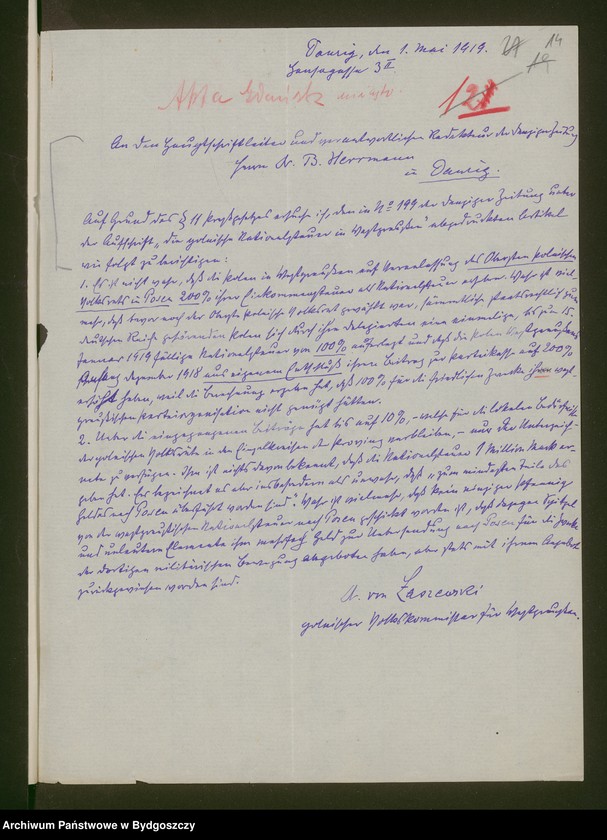 14
Danzig, den 1. Mai 1919.
19
Hansagasse 3 II
Akta Gdańsk miasto.
An den Hauptschriftleiter und verantwortlichen Redakteur der Danziger Zeitung
Herrn Dr. B. Herrmann
in Danzig.
Auf Grund des § 11 Preßgesetzes ersuche ich, den in No 199 der Danziger Zeitung unter
der Aufschrift „die polnische Nationalsteuer in Westpreußen" abgedruckten Artikel
wie folgt zu berichtigen:
1. Es ist nicht wahr, daß die Polen in Westpreußen auf Veranlassung des Obersten Polnischen
Volksrats in Posen 200% ihrer Einkommensteuer als Nationalsteuer erheben. Wahr ist viel
mehr, daß bevor noch der Oberste Polnische Volksrat gewählt war, sämmtliche staatsrechtlich zum
deutschen Reiche gehörenden Polen sich durch ihre Delegierten eine einmalige, bis zum 15.
Januar 1919 fällige Nationalsteuer von 100% auferlegt und daß die Polen Westpreußens
Dezember 1918 aus eigenem Entschluß ihren Beitrag zur Parteikasse auf 200%
erhöht haben, weil die Berechnung ergeben hat, daß 100% für die friedlichen Zwecke ihrer west-
preußischen Parteiorganisation nicht genügt hätten.
2. Ueber die eingegangenen Beiträge hat bis auf 10%, – welche für die lokalen Bedürfnisse
der polnischen Volksräte in den Einzelkreisen der Provinz verbleiben, – nur der Unterzeich-
nete zu verfügen. Ihm ist nichts davon bekannt, daß die Nationalsteuer 1 Million Mark er-
geben hat. Er bezeichnet es aber insbesondere als unwahr, daß „zum mindesten Teile des
Geldes nach Posen überführt worden sind". Wahr ist vielmehr, daß kein einziger Pfennig
von der westpreußischen Nationalsteuer nach Posen geschickt worden ist, daß dagegen Spitzel
und unlautere Elemente ihm mehrfach Geld zur Uebersendung nach Posen für die Zwecke
der dortigen militärischen Bewegung angeboten haben, aber stets mit ihrem Angebot
zurückgewiesen worden sind.
v. Laszewski
polnischer Volkskommissar für Westpreußen.
Archiwum Państwowe w Bydgoszczy